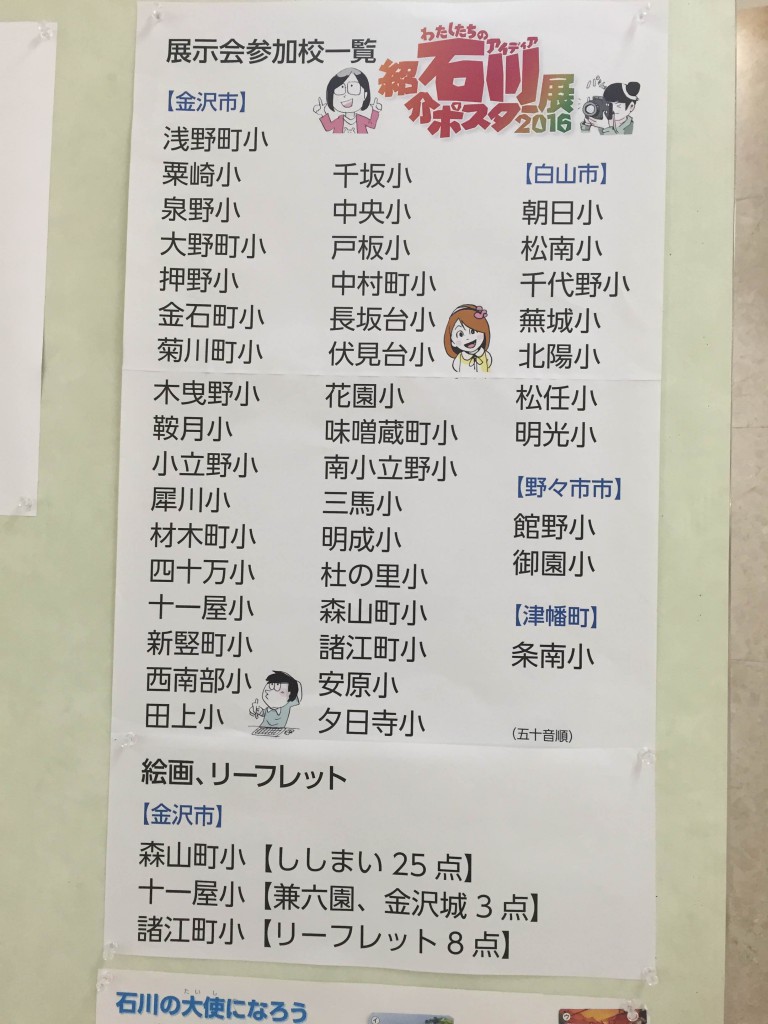 展示会参加校一覧
わたしたちの
アイディア
石川
紹介ポスター展
2016
【金沢市】
浅野町小
粟崎小
泉野小
大野町小
押野小
金石町小
菊川町小
木曳野小
鞍月小
小立野小
犀川小
材木町小
四十万小
十一屋小
新竪町小
西南部小
田上小
千坂小
中央小
戸板小
中村町小
長坂台小
伏見台小
花園小
味噌蔵町小
南小立野小
三馬小
明成小
杜の里小
森山町小
諸江町小
安原小
夕日寺小
【白山市】
朝日小
松南小
千代野小
蕪城小
北陽小
松任小
明光小
【野々市市】
館野小
御園小
【津幡町】
条南小
(五十音順)
絵画、リーフレット
【金沢市】
森山町小【ししまい 25 点】
十一屋小【兼六園、金沢城 3 点】
諸江町小【リーフレット 8 点】
たいし
石川の大使になろう